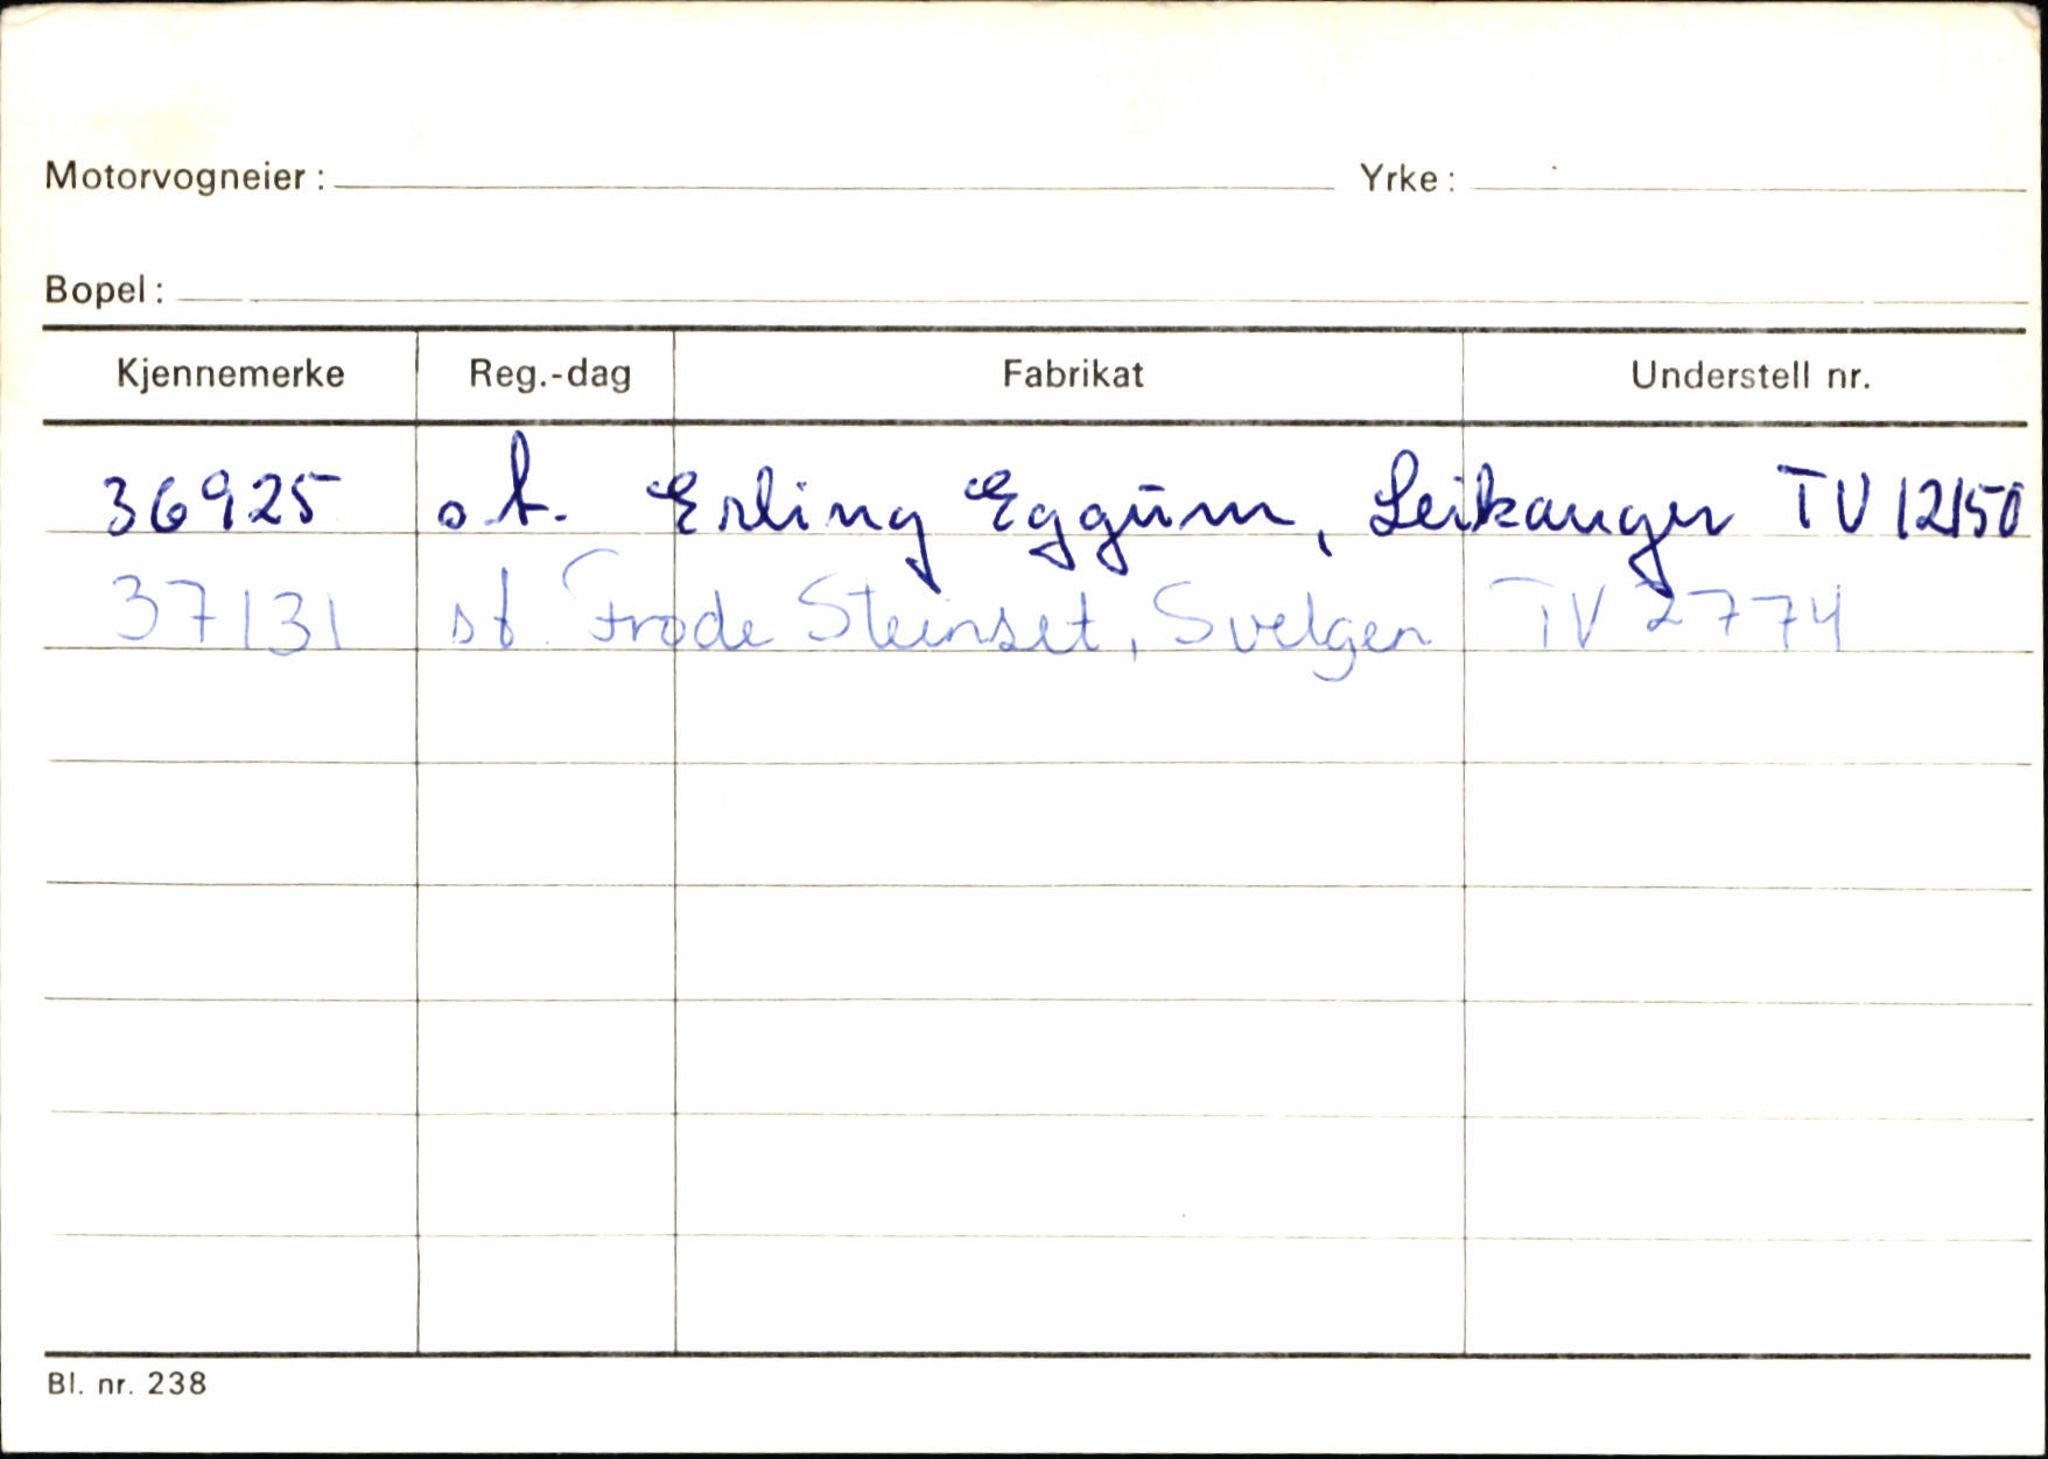 Motorvogneier: Yrke:
Bopel:
Kjennemerke Reg.-dag Fabrikat Understell nr.
36925 o.t. Erling Eggum, Leikanger TV 12150
37131 st. Frode Steinset, Svelgen TV 2774
Bl. nr. 238